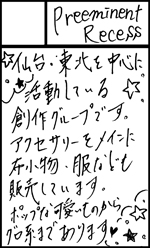 Preeminent
Recess
仙台・東北を中心に
活動している
創作グループです。
アクセサリーをメインに
布小物・服なども
販売しています。
ポップな可愛いものから
グロ系まであります♥